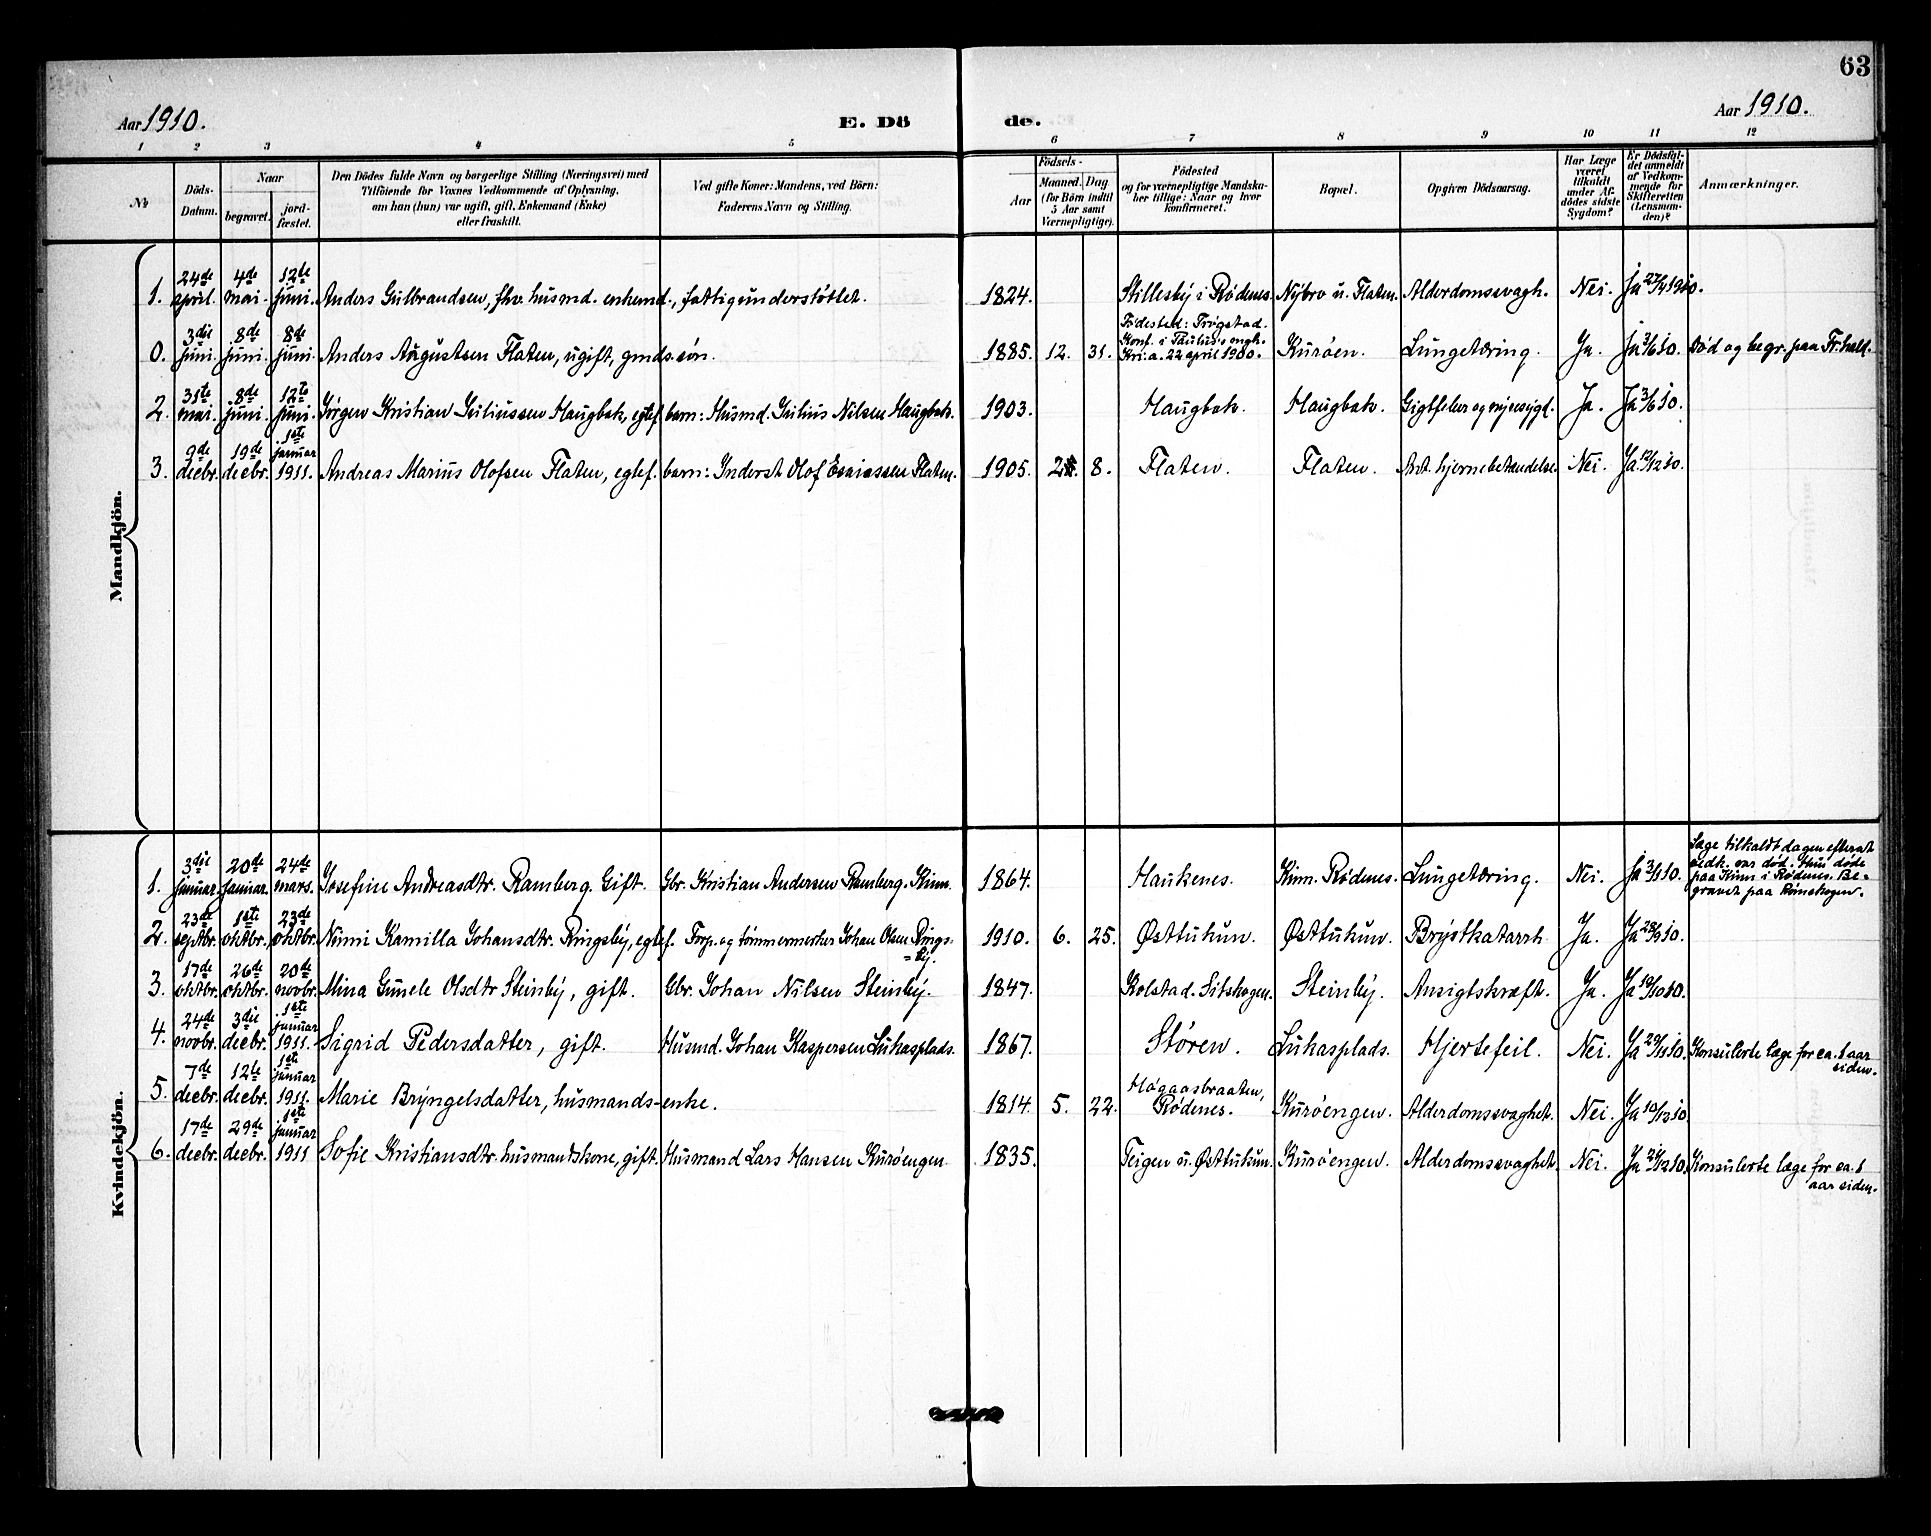 63
Aar 1910.
E. Döde.
Aar 1910.
1 2 3 4 5 6 7 8 9 10 11 12
No
Döds-Datum.
Naar
begravet.
jordfæstet.
Den Dödes fulde Navn og borgerlige Stilling (Næringsvei) med
Tilföiende for Voxnes Vedkommende af Oplysning,
om han (hun) var ugift, gift, Enkemand (Enke)
eller fraskilt.
Ved gifte Koner: Mandens, ved Börn:
Faderens Navn og Stilling.
Födsels-
Aar
Maaned. Dag
(for Börn indtil
5 Aar samt
Værnepligtige).
Födested
og for værnepligtige Mandskaber tillige: Naar og hvor
konfirmeret.
Bopæl.
Opgiven Dödsaarsag.
Har Læge
været
tilkaldt
under Afdödes sidste
Sygdom?
Er Dödsfaldet anmeldt
af Vedkommende for
Skifteretten
(Lensmanden)?
Anmærkninger.
Mandkjön.
1. 24de april. 4de mai. 12te juni. Anders Gulbrandsen, fhv. husmd. enkemd., fattigunderstøttet. 1824. Stillesby i Rødenes. Nybro u. Flaten. Alderdomssvagh. Nei. Ja 27/4 1910.
0. 3die juni. 8de juni. 8de juni. Anders Augustsen Flaten, ugift, gmds.søn. 1885. 12. 31. Fødested: Trøgstad. Konf. i Paulus's mgh. Kri.a. 22 april 1900. Kurøen. Lungetæring. Ja. Ja 3/6 10. Død og begr. paa Fr.hald.
2. 31te mai. 8de juni. 12te juni. Jørgen Kristian Juliussen Haugbak, egtef. barn: Husmd. Julius Nilsen Haugbak. 1903. Haugbak. Haugbak. Gigtfeber og nyresygd. Ja. Ja 3/6 10.
3. 9de decbr. 19de decbr. 1ste januar 1911. Andreas Marius Olofsen Flaten, egtef. barn: Inderst Olof Esaiassen Flaten. 1905. 2. 8. Flaten. Flaten. Ant. hjernebetændelse. Nei. Ja 12/12 10.
Kvindekjön.
1. 3die januar. 20de januar. 24de mars. Josefine Andreasdtr. Ramberg. Gift. Gbr. Kristian Andersen Ramberg. Kinn. 1864. Haukenes. Kinn. Rødenes. Lungetæring. Nei. Ja 3/1 10. Læge tilkaldt dagen efterat vedk. var død. Hun døde paa Kinn i Rødenes. Begravet paa Rømskogen.
2. 23de septbr. 1ste oktbr. 23de oktbr. Nimi Kamilla Johansdtr. Ringsby, egtef. Forp. og tømmermerker Johan Olsen Ringsby. 1910. 6. 25. Østtukun. Østtukun. Brystkatarrh. Ja. Ja 28/9 10.
3. 17de oktbr. 26de oktbr. 20de novbr. Mina Gunele Olsdtr Steinby, gift. Gbr. Johan Nilsen Steinby. 1847. Kolstad. Sitskogen. Steinby. Ansigtskræft. Ja. Ja 19/10 10.
4. 24de novbr. 3die decbr. 1ste januar 1911. Sigrid Pedersdatter, gift. Husmd. Johan Kaspersen Lukasplads. 1867. Støren. Lukasplads. Hjertefeil. Nei. Ja 29/11 10. Konsulerte læge for ca. 1 aar siden.
5. 7de decbr. 12te decbr. 1ste januar 1911. Marie Bryngelsdatter, husmands-enke. 1814. 5. 22. Høgaasbraaten, Rødenes. Kurøengen. Alderdomssvaghet. Nei. Ja 10/12 10.
6. 17de decbr. 29de decbr. 1ste januar 1911 Sofie Kristiansdtr. husmandskone, gift. Husmand Lars Hansen Kurøengen. 1835. Teigen u. Østtukun. Kurøengen. Alderdomssvaghet. Nei. Ja 21/12 10. Konsulerte læge for ca. 1 aar siden.